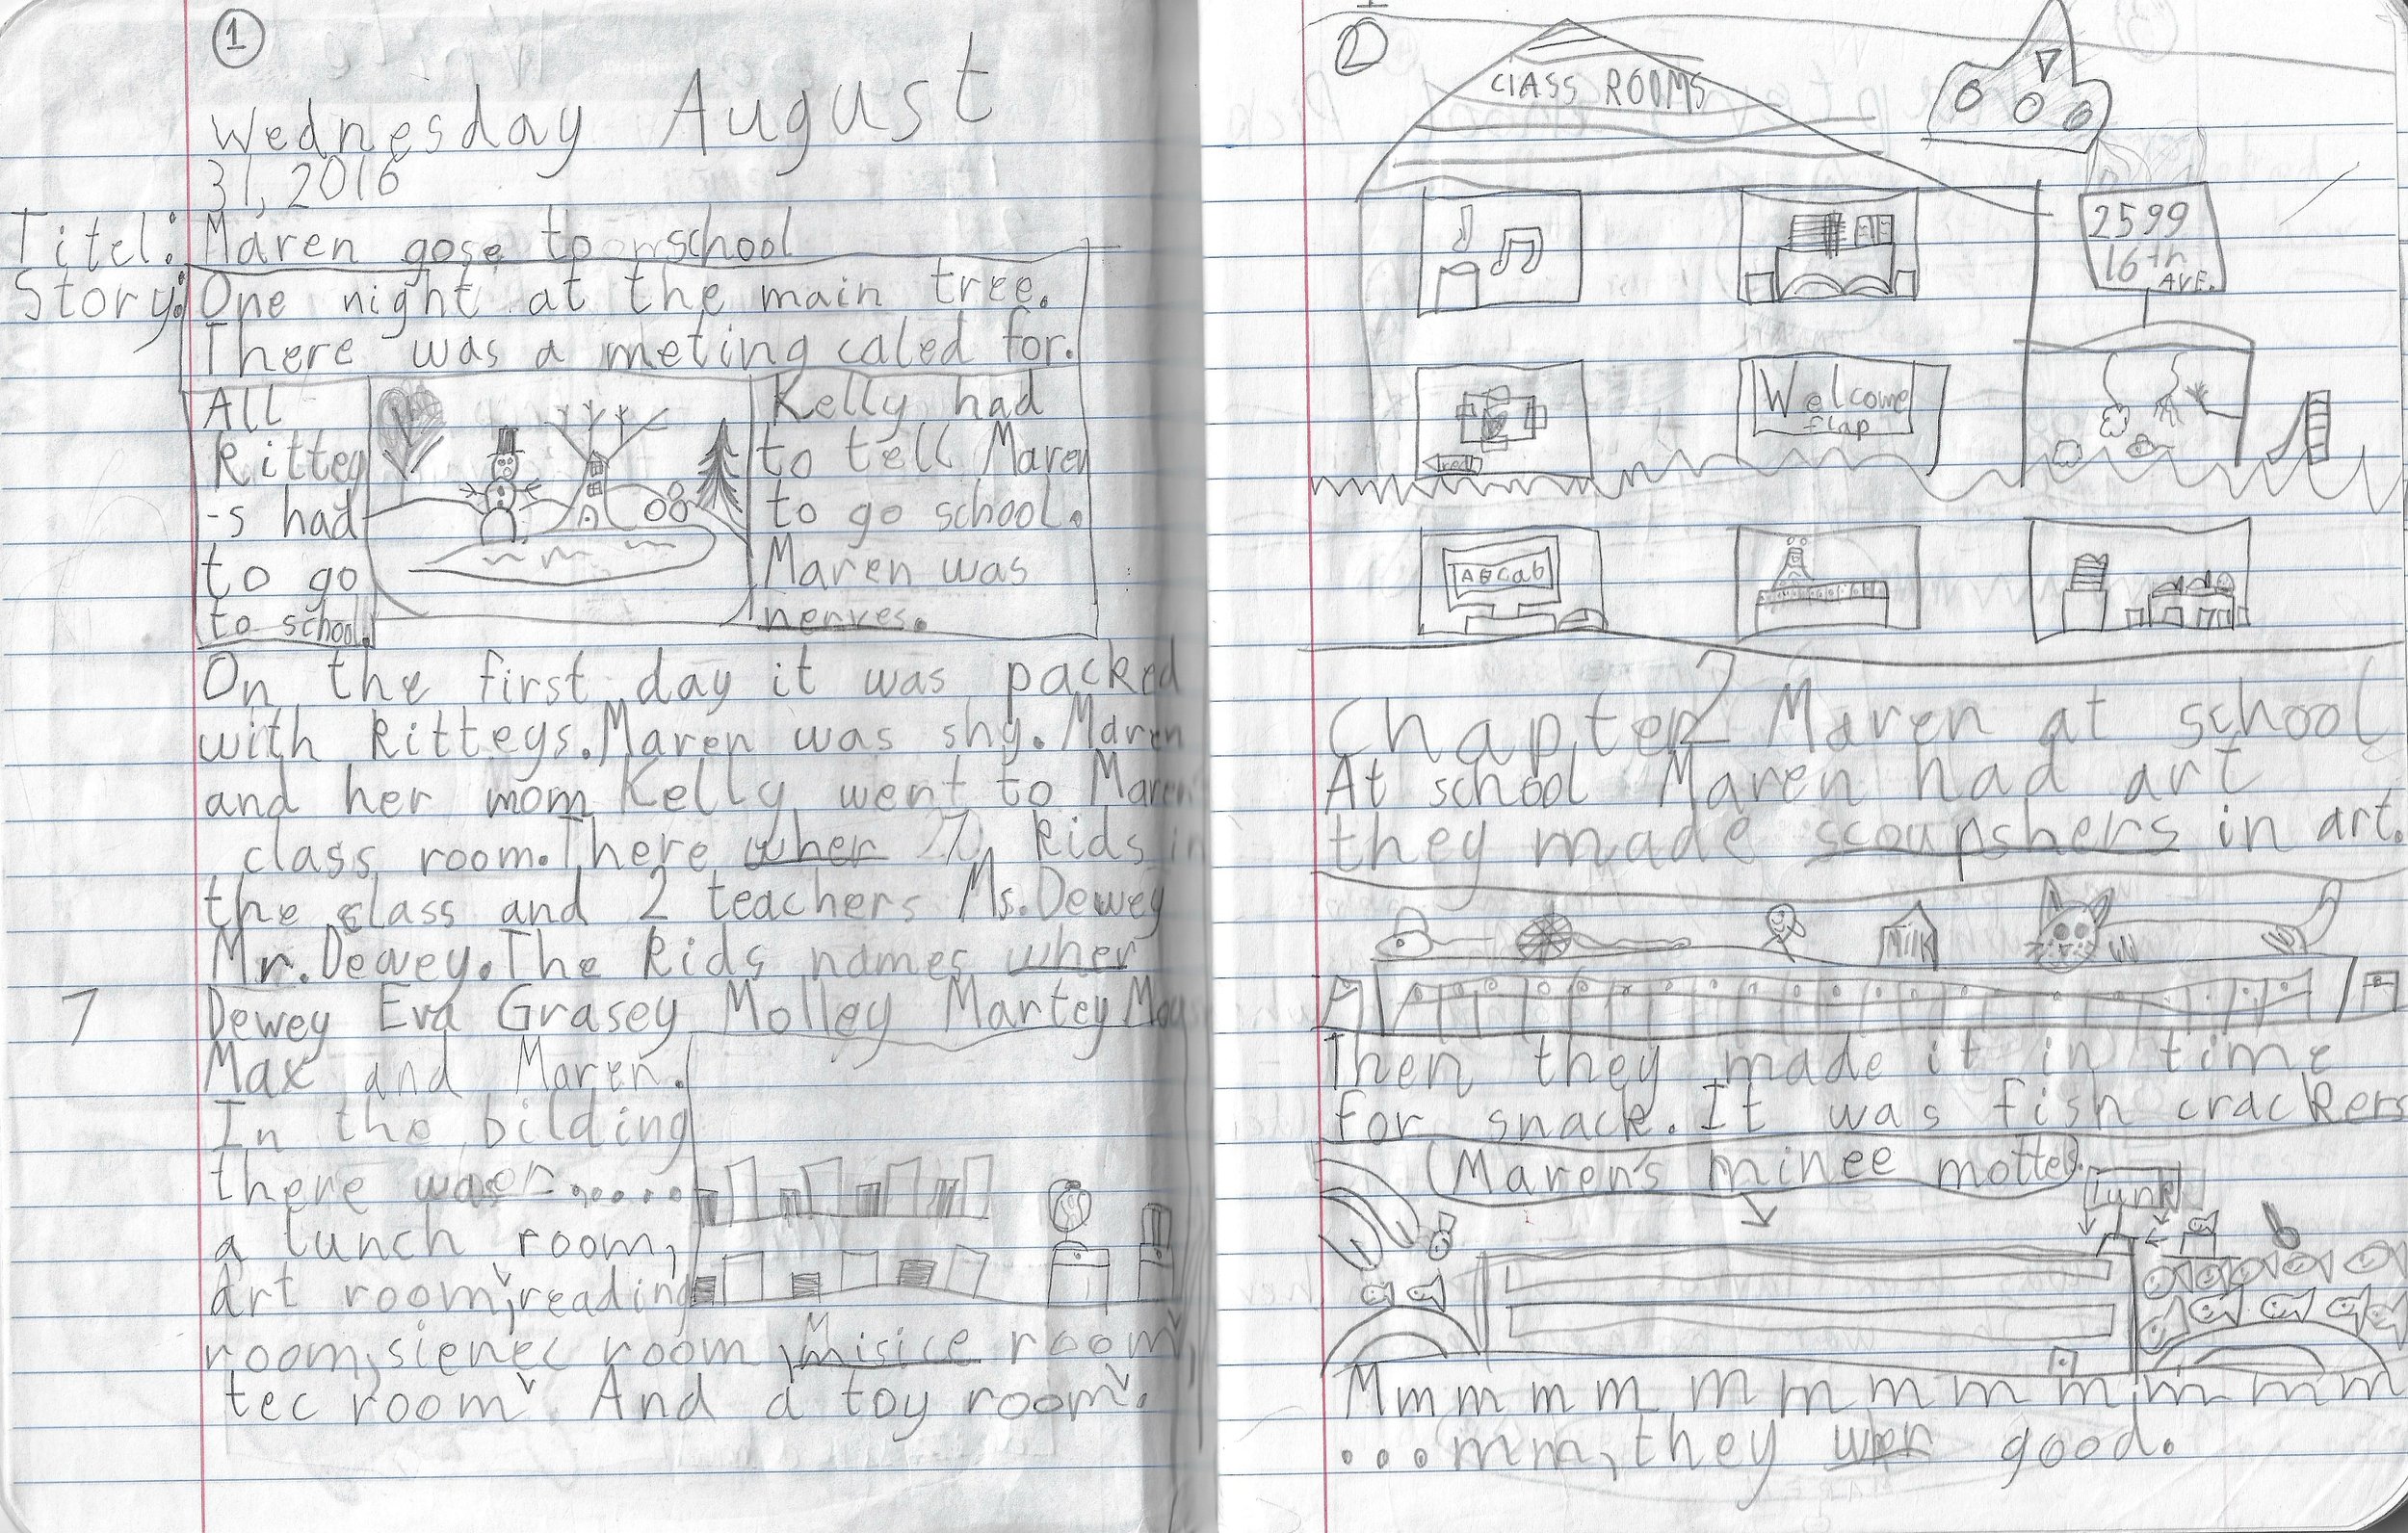 1
Wednesday August
31, 2016
Titel: Maren gose to school
Story: One night at the main tree.
There was a meting caled for.
All
kitteg
-s had
to go
to school.
Kelly had
to tell Maren
to go school.
Maren was
nerves.
On the first day it was packed
with kitteys. Maren was shy. Maren
and her mom Kelly went to Maren
class room. There wher kids in
the class and 2 teachers Ms. Dewey
Mr. Dewey. The kids names wher
7 Dewey Eva Grasey Molley Martey
Max and Maren.
In the bilding
there was
a lunch room,
art room, reading
room, sienec room, Misice room,
tec room. And a toy room.
2
ClASS ROOMS
2599
16th
AVE.
Welcome
flap
ABCab
Chapter 2 Maren at school
At school Maren had art
they made scoupshers in art.
Milk
Then they made it in time
for snack. It was fish crackers
(Maren's minee mottel)
Mmmmmmmmmmmmm
...mm, they wher good.